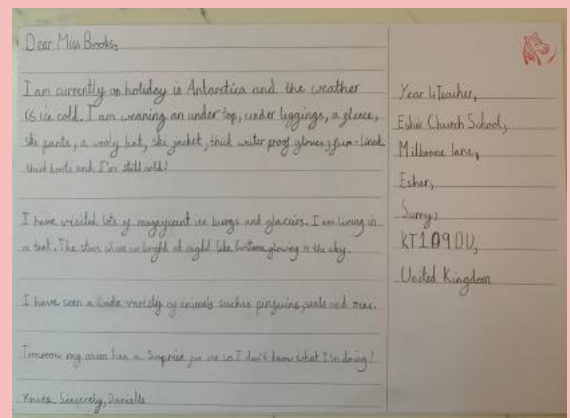 Dear Miss Brooks,
I am currently on holiday in Antarctica and the weather
is ice cold. I am wearing an under top, under leggings, a fleece,
ski pants, a wooly hat, ski jacket, thick water proof gloves, fur-lined
thick boots and I'm still cold!
I have visited lots of ice burgs and glaciers. I am living in
a tent. The stars shine so bright at night like lanterns glowing in the sky.
I have seen a wide variety of animals such as pinguins, seals and
Tomorrow my mum has a surprise for me so I don't know what I'm doing!
Yours Sincerely, Danielle
Year 4 Teacher,
Esher Church School,
Milbourne lane,
Esher,
Surry,
KT10 9DU,
United Kingdom